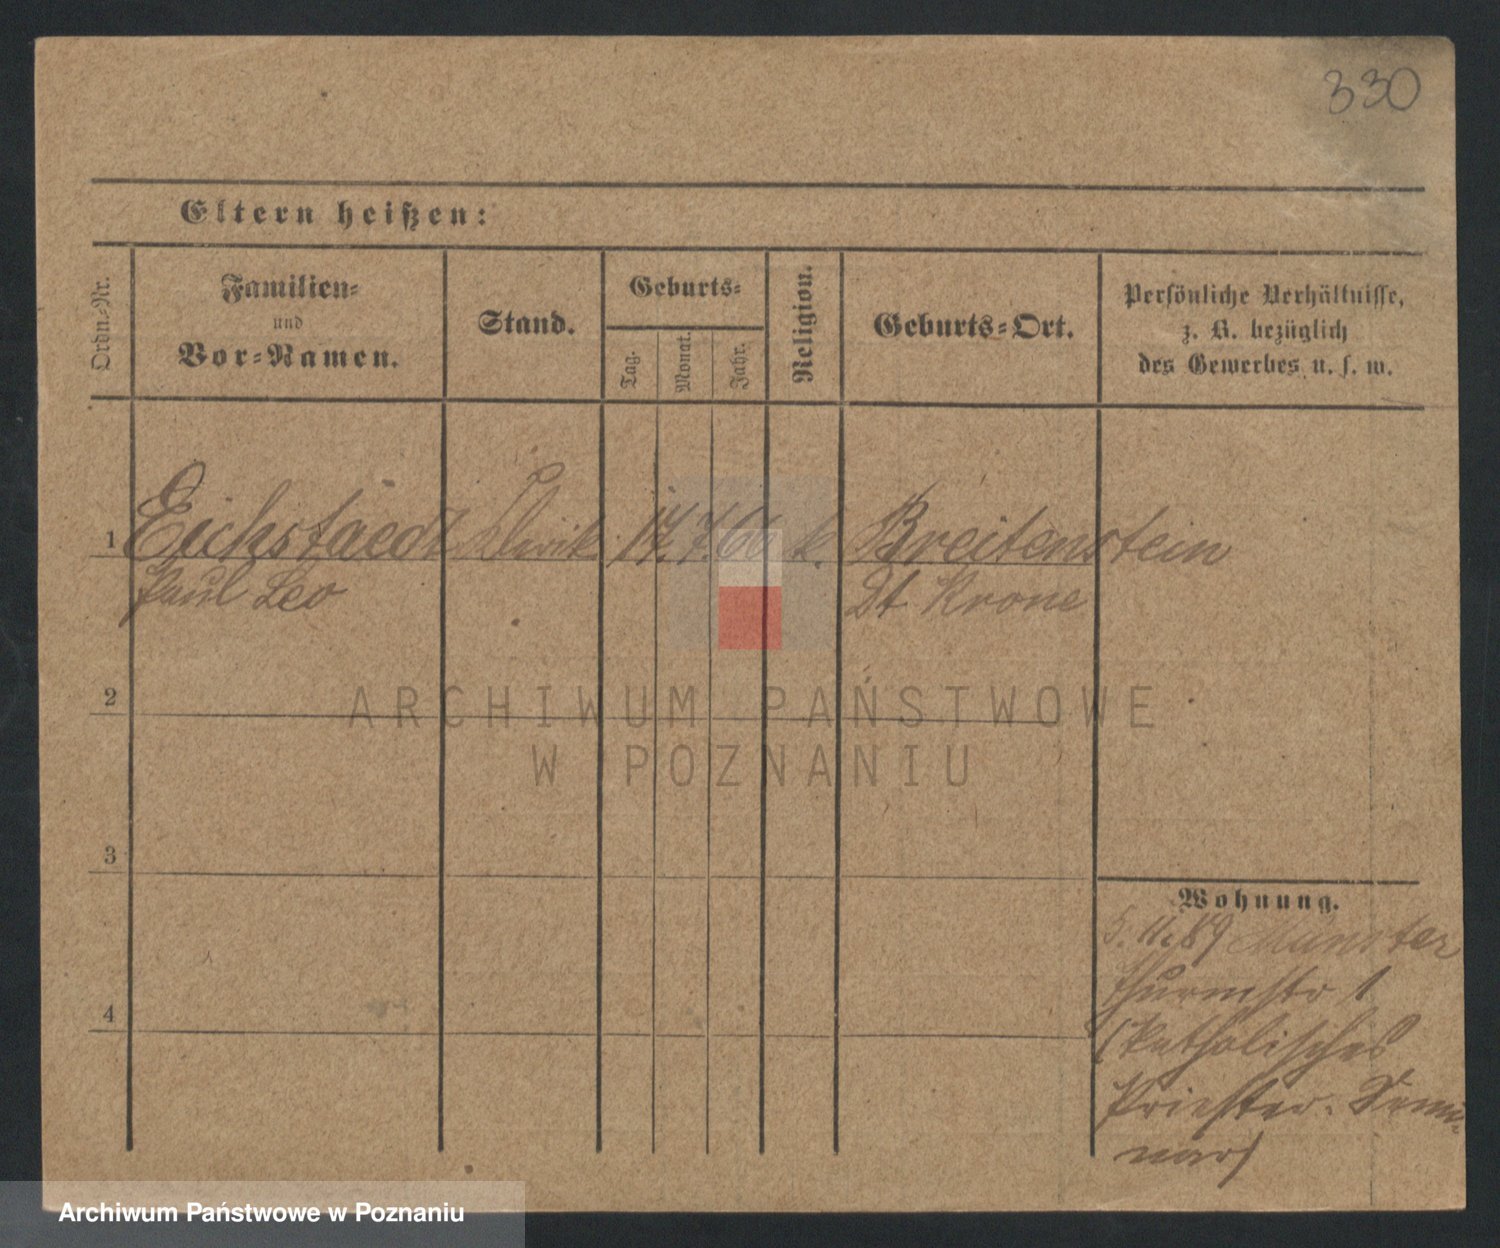 330
Eltern heißen:
Ordn.-Nr.
Familien-
und
Vor-Namen.
Stand.
Geburts-
Tag.
Monat.
Jahr.
Religion.
Geburts-Ort.
Persönliche Verhältnisse,
z. B. bezüglich
des Gewerbes u. s. w.
1 Eichstaedt 17. 7. 66 k. Breitenstein
Paul Leo Dt. Krone
2
3
4
Wohnung.
5. 11. 89 Münster
Thurmstr 1
(katholisches
Priester-Semi-
nar)
ARCHIWUM PAŃSTWOWE
W POZNANIU
Archiwum Państwowe w Poznaniu